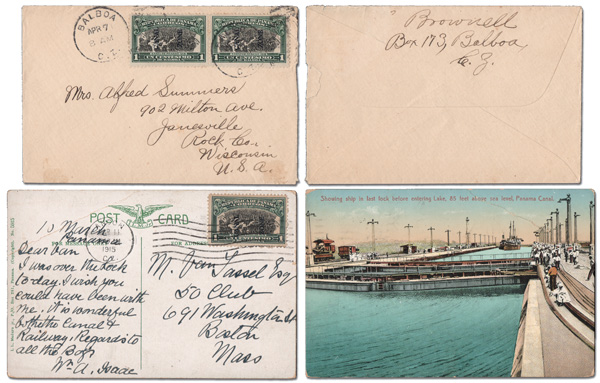 BALBOA
APR 7
C. Z.
CANAL ZONE
CANAL ZONE
1 UN CENTESIMO 1
1 UN CENTESIMO 1
Mrs. Alfred Summers
902 Milton Ave.
Janesville
Rock Co.,
Wisconsin
U.S.A.
Brownell
Box 173, Balboa,
C. Z.
POST CARD
FOR ADDRESS
1915
10 March
Panama
Dear Van
I was over the lock
to-day. I wish you
could have been with
me. it is wonderful
both the Canal &
Railway. Regards to
all the Boys
Wm A. Isaac
M. Van Tassel Esq
50 Club
691 Washington St
Boston
Mass
Showing ship in last lock before entering Lake, 85 feet above sea level, Panama Canal.